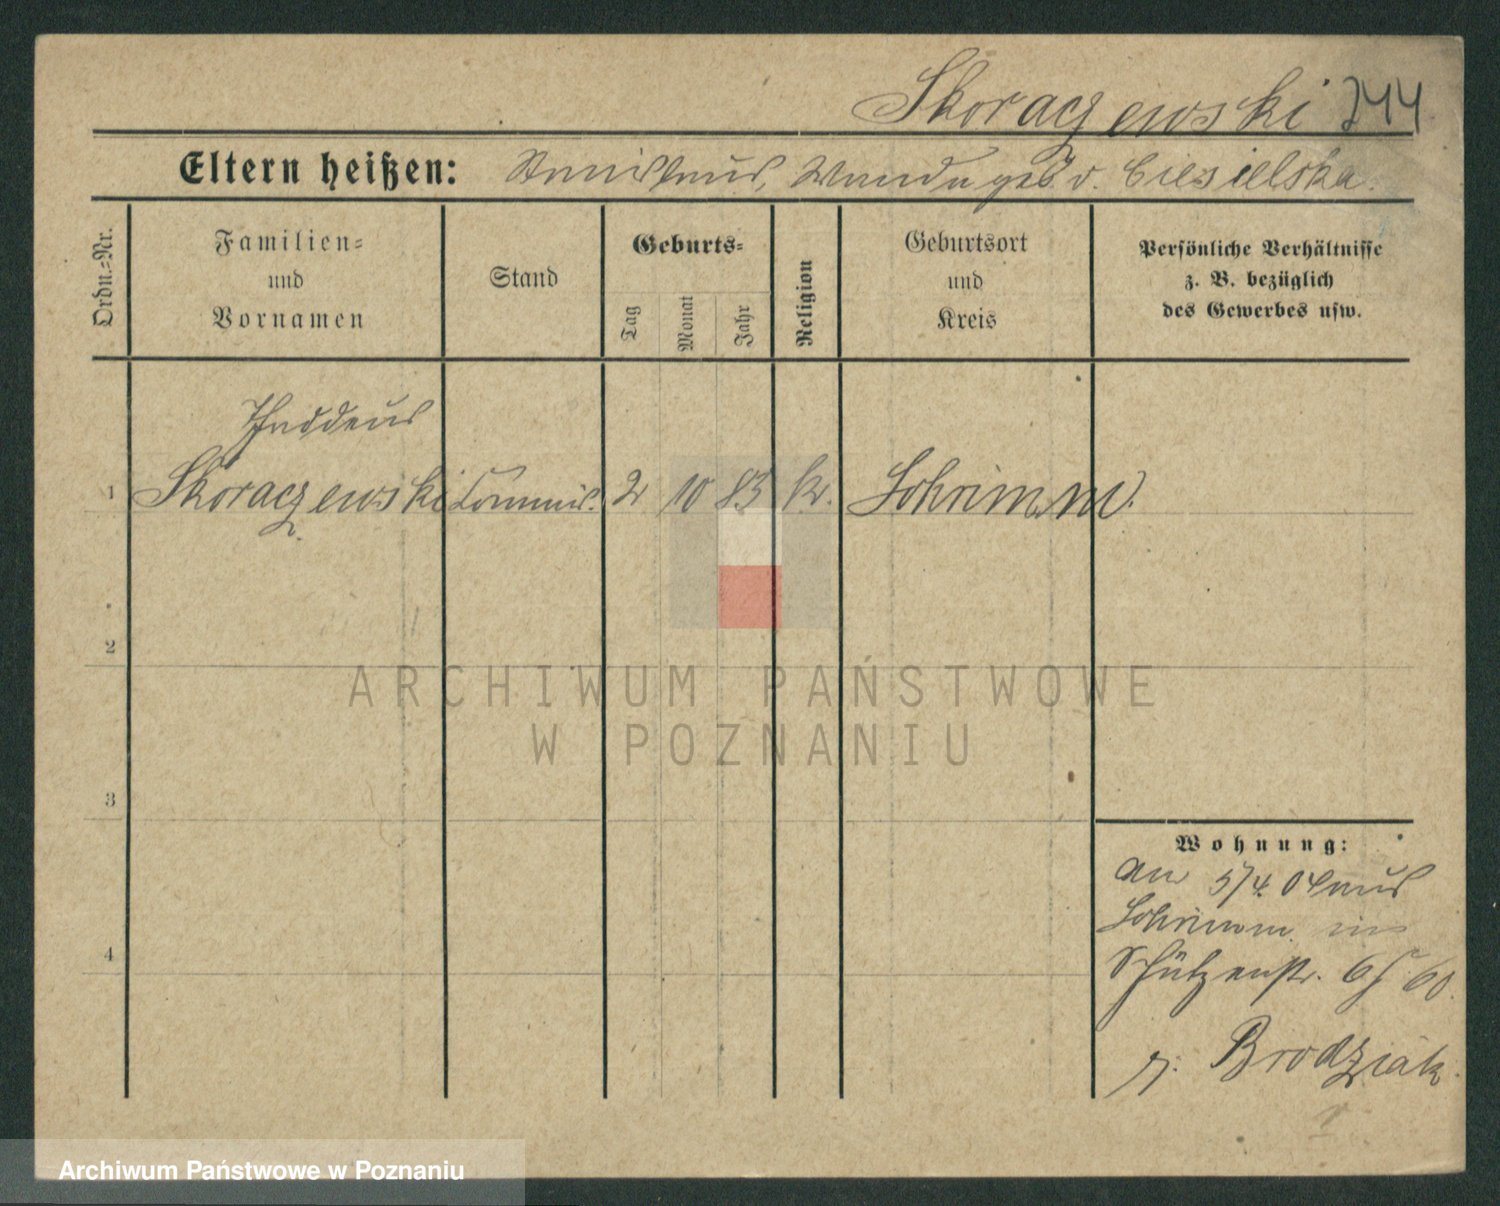 Skoraczewski 244
Eltern heißen: Stanislaus, Wanda geb v. Ciesielska.
Ordn.-Nr.
Familien-
und
Vornamen
Stand
Geburts-
Tag
Monat
Jahr
Religion
Geburtsort
und
Kreis
Persönliche Verhältnisse
z. B. bezüglich
des Gewerbes usw.
Thaddeus
1 Skoraczewski Commis. 2 10 83 k. Schrimm.
2
3
4
Wohnung:
an 5/4. 04 aus
Schrimm in
Schützenstr. 60.
Brodziak.
ARCHIWUM PAŃSTWOWE
W POZNANIU
Archiwum Państwowe w Poznaniu